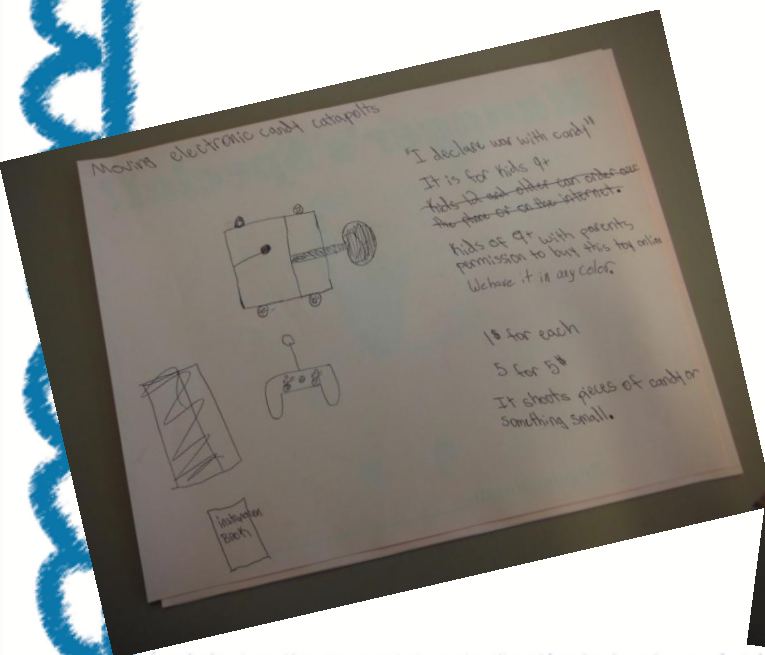 Moving electronic candy catapolts
"I declare war with candy"
It is for kids 9+
Kids 12 and older can order over
the phone or on the internet.
Kids of 9+ with parents
permission to buy this toy online
We have it in any color.
1$ for each
5 for 5$
It shoots pieces of candy or
something small.
Book